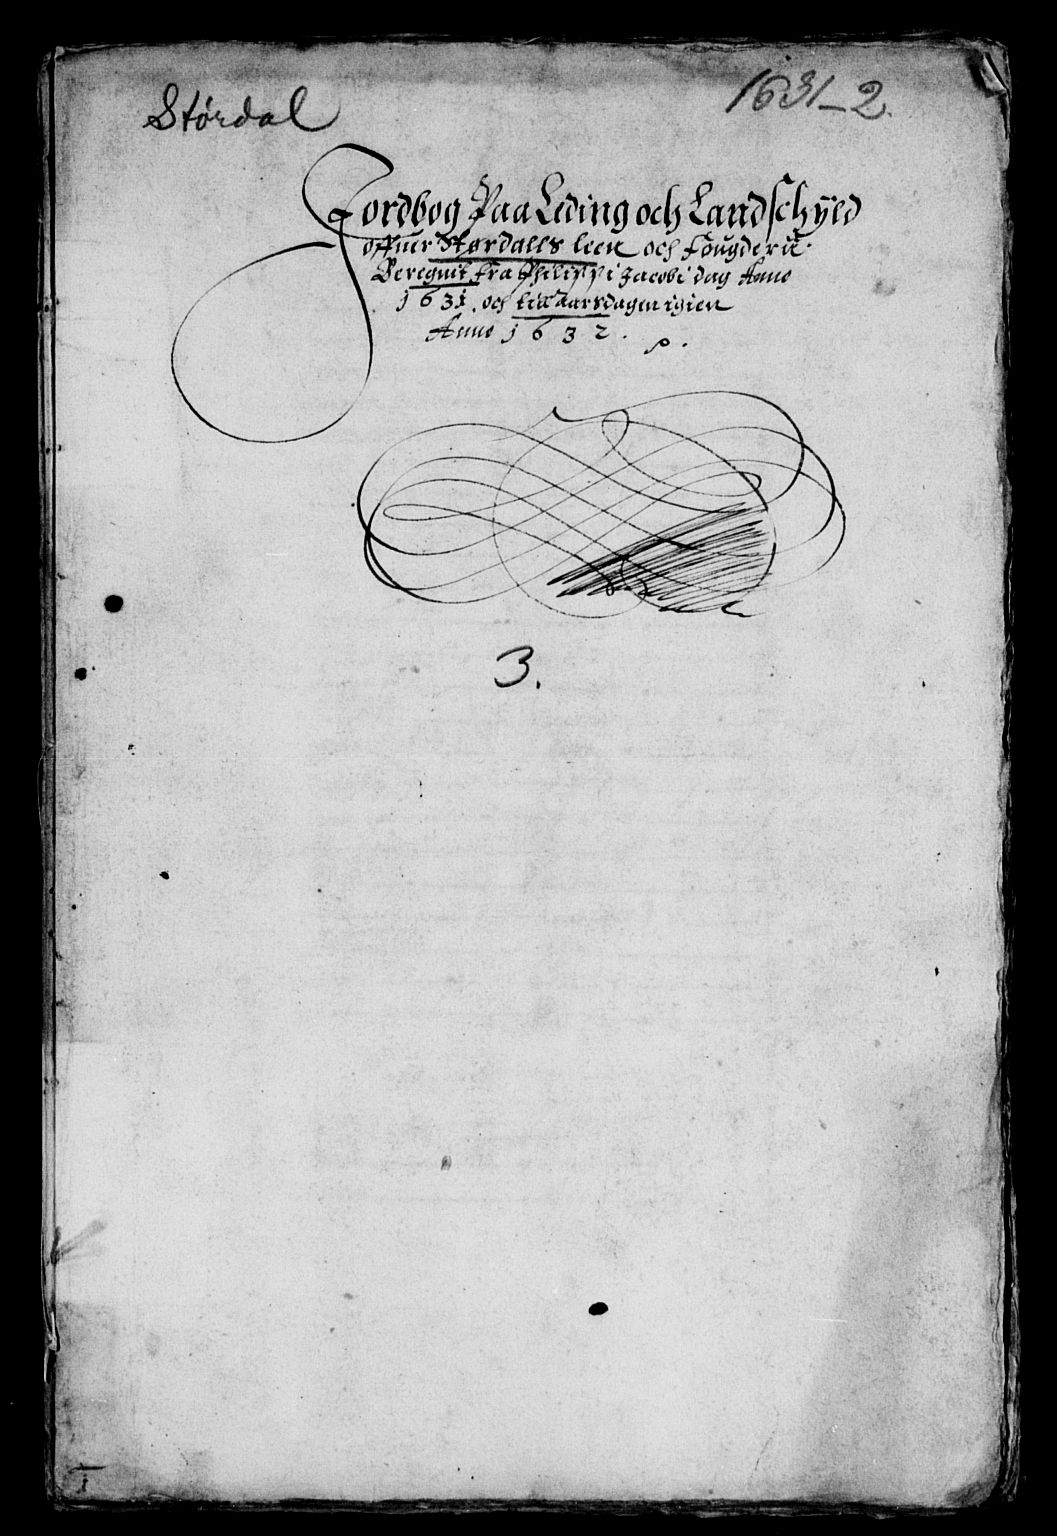 Størdal
1631_2.
Jordbog Paa Leding och Landschÿld
offuer Størdalls leen och Fougderie
Beregnit fra Philippi Jacobi dag Anno
1631. och till Aarsdagen igien
Anno 1632.
3.
1